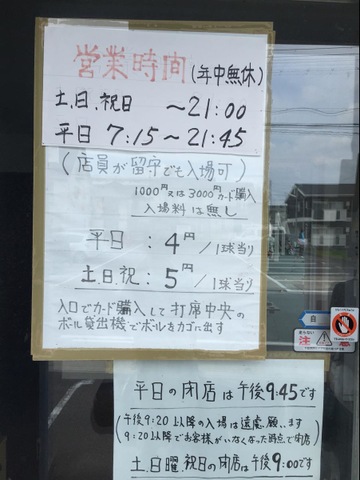 営業時間(年中無休)
土.日.祝日 ～21:00
平日 7:15～21:45
(店員が留守でも入場可)
1000円又は3000円カード購入
入場料は無し
平日:4円/1球当り
土.日.祝:5円/1球当り
入口でカード購入して打席中央の
ボール貸出機でボールをカゴに出す
平日の閉店は午後9:45です
(午後9:20以降の入場は遠慮願います
9:20以降でお客様がいなくなった時点で閉店
土.日曜.祝日の閉店は午後9:00です
自
注